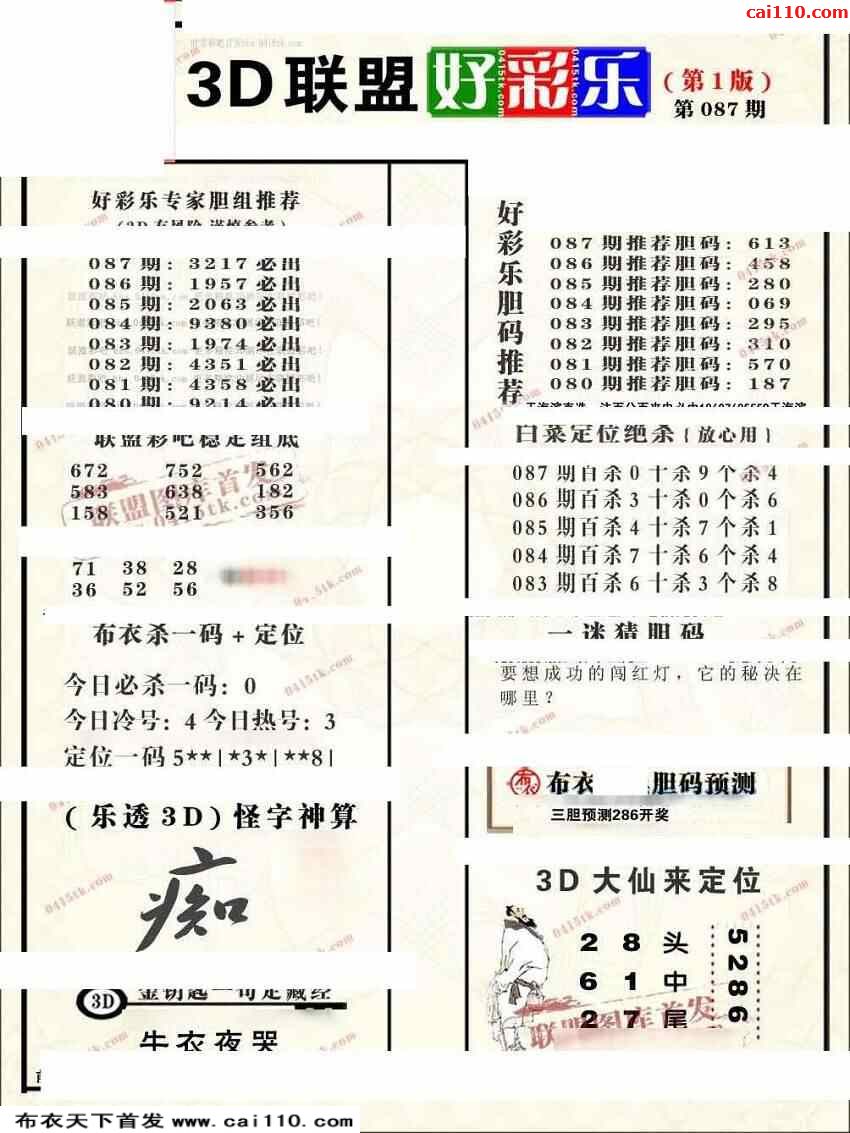 cai110.com
3D联盟好彩乐
(第1版)
第087期
好彩乐专家胆组推荐
087期: 3217必出
086期: 1957必出
085期: 2063必出
084期: 9380必出
083期: 1974必出
082期: 4351必出
081期: 4358必出
080期: 9214必出
联盟彩吧稳定组底
672 752 562
583 638 182
158 521 356
71 38 28
36 52 56
布衣杀一码+定位
今日必杀一码: 0
今日冷号: 4 今日热号: 3
定位一码 5**|*3*|**8|
(乐透3D)怪字神算
痴
3D 金钥匙一句定藏经
牛衣夜哭
好彩乐胆码推荐
087期推荐胆码: 613
086期推荐胆码: 458
085期推荐胆码: 280
084期推荐胆码: 069
083期推荐胆码: 295
082期推荐胆码: 310
081期推荐胆码: 570
080期推荐胆码: 187
白菜定位绝杀{放心用}
087期百杀0十杀9个杀4
086期百杀3十杀0个杀6
085期百杀4十杀7个杀1
084期百杀7十杀6个杀4
083期百杀6十杀3个杀8
一迷猜胆码
要想成功的闯红灯,它的秘决在
哪里?
布衣 胆码预测
三胆预测286开奖
3D大仙来定位
2 8 头
6 1 中
2 7 尾
5286
联盟图库首发
0415tk.com
布衣天下首发 www.cai110.com